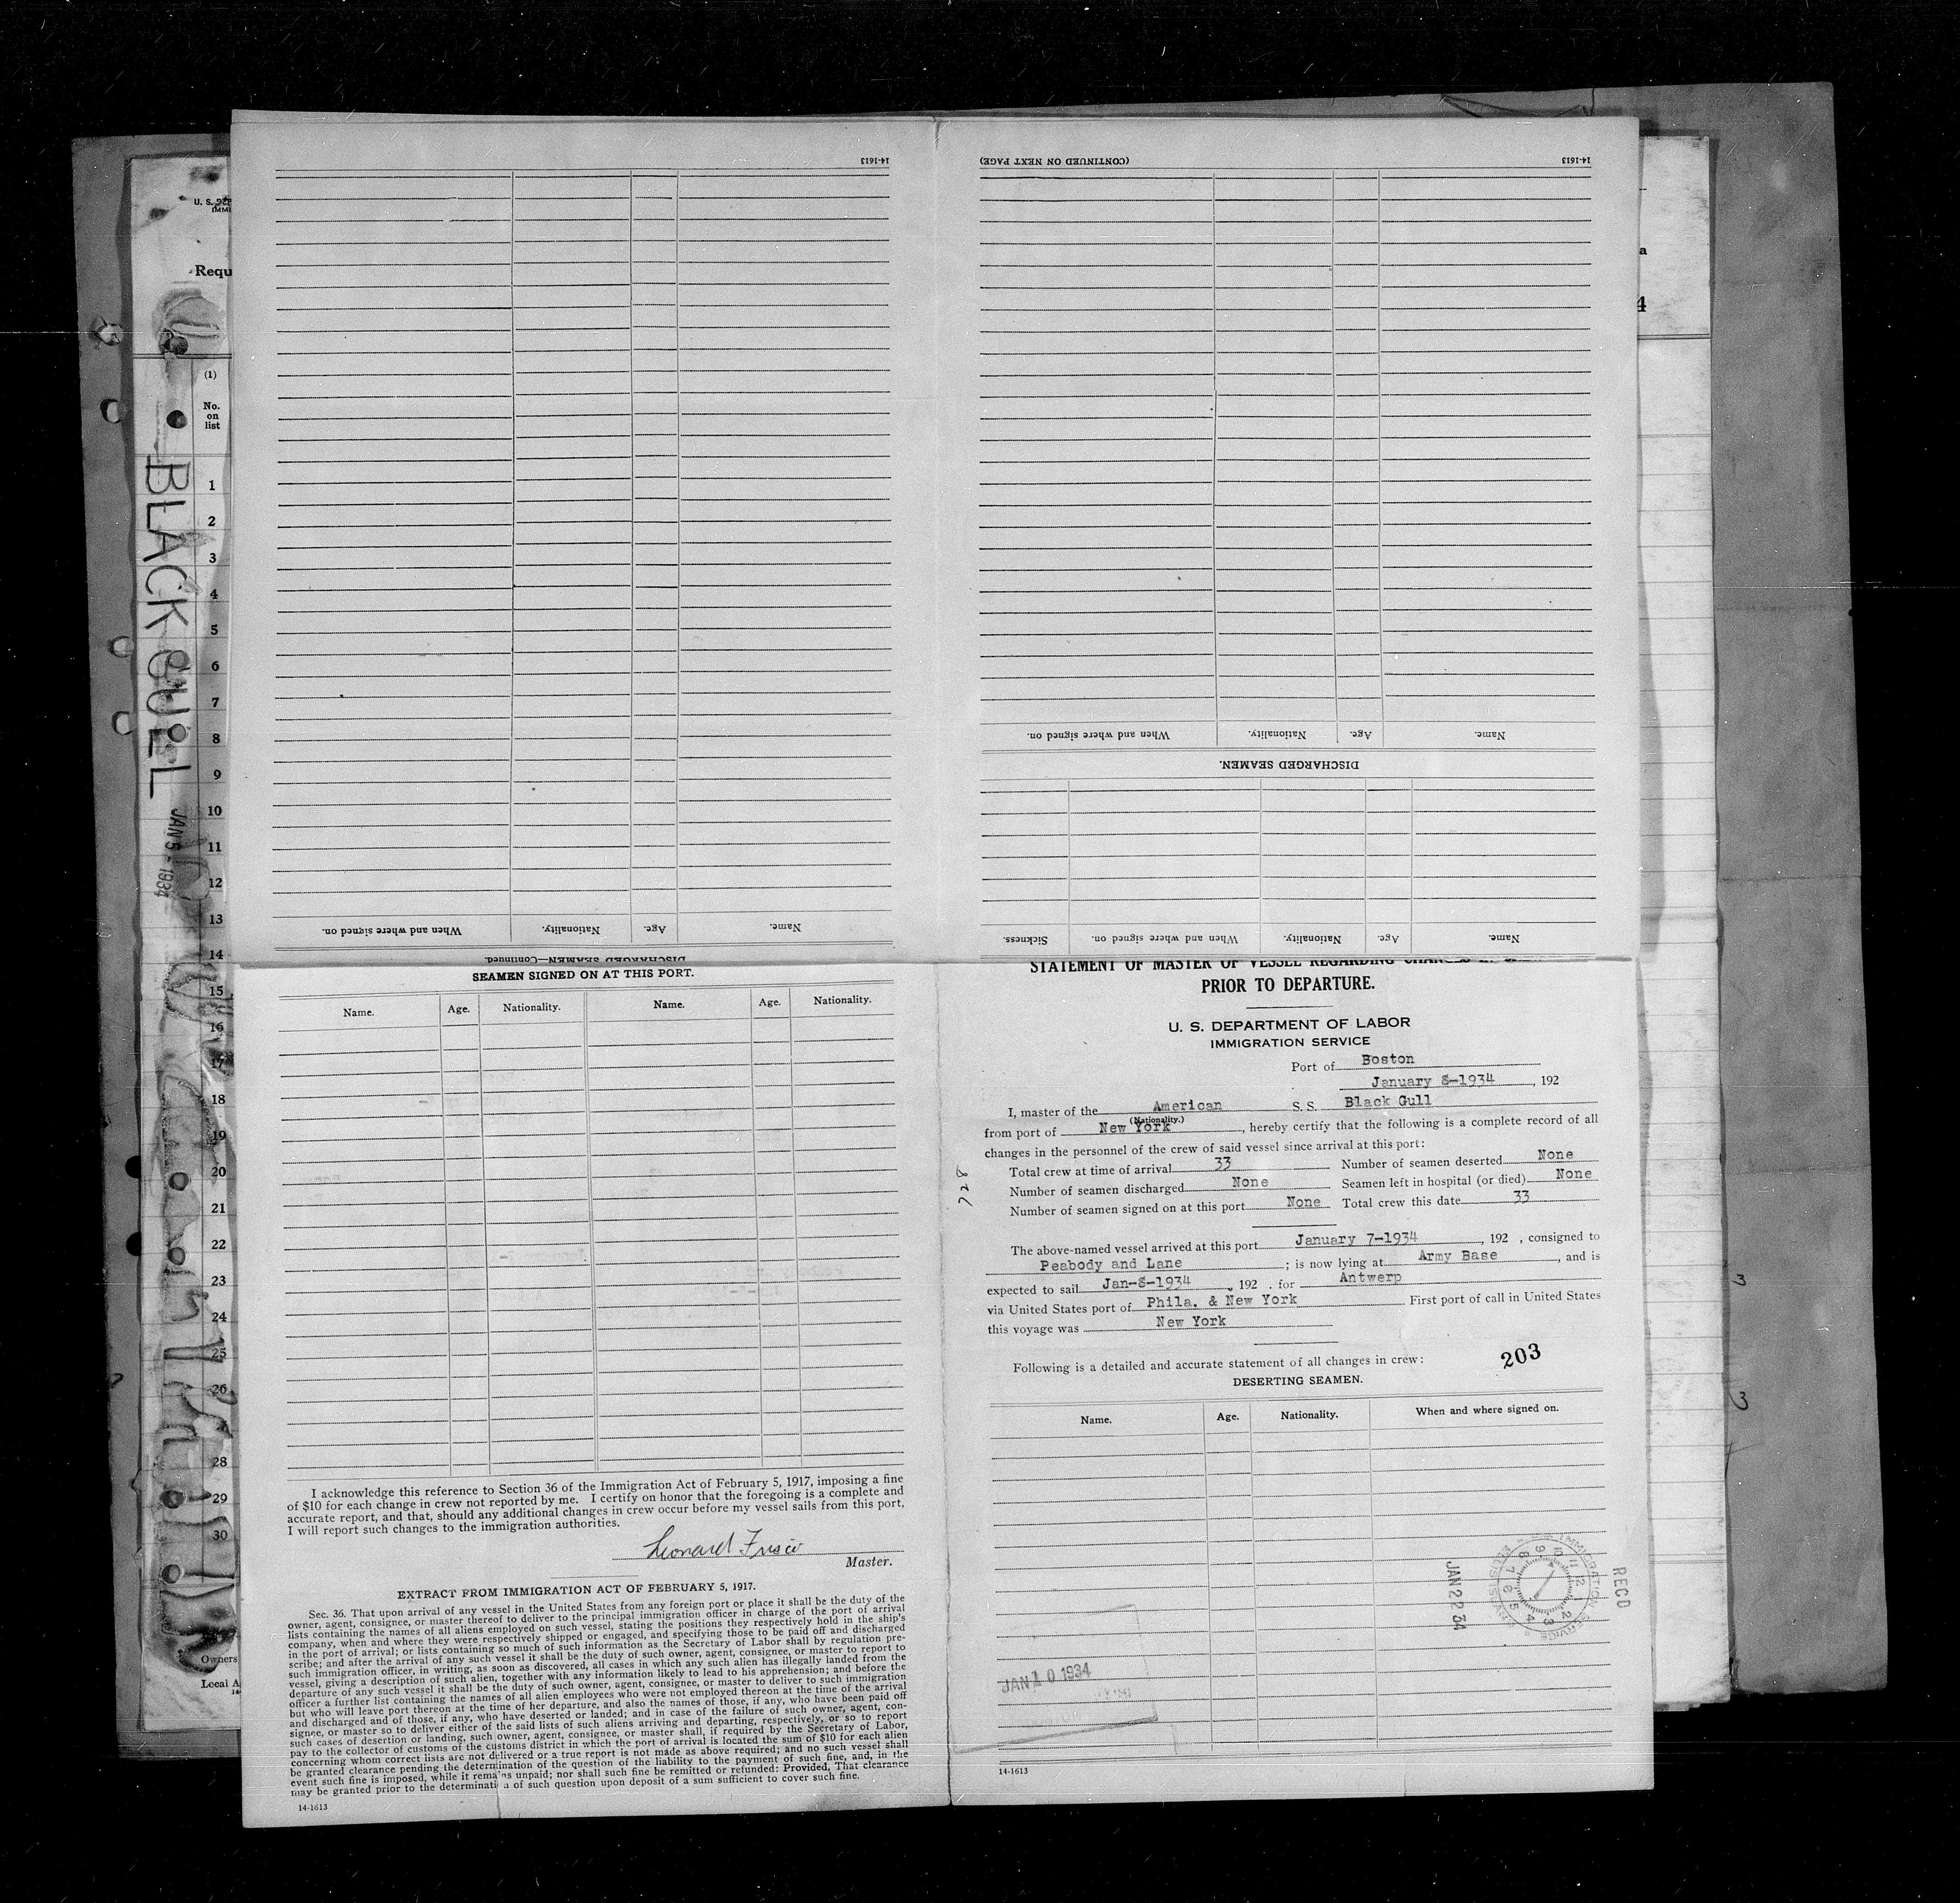 14-1613
When and where signed on.
Nationality.
Age.
Name.
DISCHARGED SEAMEN—Continued.
14-1613
(CONTINUED ON NEXT PAGE)
When and where signed on.
Nationality.
Age.
Name.
DISCHARGED SEAMEN.
Sickness.
When and where signed on.
Nationality.
Age.
Name.
U. S. DEP
IMMI
Requ
(1)
No.
on
list
1
2
3
4
5
6
7
8
9
10
11
12
13
14
15
16
17
18
19
20
21
22
23
24
25
26
28
29
30
Owners
Local A
14-
BLACK GULL
JAN 5 - 1934
a
4
3
3
SEAMEN SIGNED ON AT THIS PORT.
Name. Age. Nationality. Name. Age. Nationality.
I acknowledge this reference to Section 36 of the Immigration Act of February 5, 1917, imposing a fine
of $10 for each change in crew not reported by me. I certify on honor that the foregoing is a complete and
accurate report, and that, should any additional changes in crew occur before my vessel sails from this port,
I will report such changes to the immigration authorities.
Leonard Frisco
Master.
EXTRACT FROM IMMIGRATION ACT OF FEBRUARY 5, 1917.
Sec. 36. That upon arrival of any vessel in the United States from any foreign port or place it shall be the duty of the
owner, agent, consignee, or master thereof to deliver to the principal immigration officer in charge of the port of arrival
lists containing the names of all aliens employed on such vessel, stating the positions they respectively hold in the ship's
company, when and where they were respectively shipped or engaged, and specifying those to be paid off and discharged
in the port of arrival; or lists containing so much of such information as the Secretary of Labor shall by regulation pre-
scribe; and after the arrival of any such vessel it shall be the duty of such owner, agent, consignee, or master to report to
such immigration officer, in writing, as soon as discovered, all cases in which any such alien has illegally landed from the
vessel, giving a description of such alien, together with any information likely to lead to his apprehension; and before the
departure of any such vessel it shall be the duty of such owner, agent, consignee, or master to deliver to such immigration
officer a further list containing the names of all alien employees who were not employed thereon at the time of the arrival
but who will leave port thereon at the time of her departure, and also the names of those, if any, who have been paid off
and discharged and of those, if any, who have deserted or landed; and in case of the failure of such owner, agent, con-
signee, or master so to deliver either of the said lists of such aliens arriving and departing, respectively, or so to report
such cases of desertion or landing, such owner, agent, consignee, or master shall, if required by the Secretary of Labor,
pay to the collector of customs of the customs district in which the port of arrival is located the sum of $10 for each alien
concerning whom correct lists are not delivered or a true report is not made as above required; and no such vessel shall
be granted clearance pending the determination of the question of the liability to the payment of such fine, and, in the
event such fine is imposed, while it remains unpaid; nor shall such fine be remitted or refunded: Provided, That clearance
may be granted prior to the determinati a of such question upon deposit of a sum sufficient to cover such fine.
14-1613
STATEMENT OF MASTER OF VESSEL REGARDING
PRIOR TO DEPARTURE.
U. S. DEPARTMENT OF LABOR
IMMIGRATION SERVICE
Port of Boston
January 8-1934, 192
I, master of the American S. S. Black Gull
(Nationality.)
from port of New York, hereby certify that the following is a complete record of all
changes in the personnel of the crew of said vessel since arrival at this port:
Total crew at time of arrival 33 Number of seamen deserted None
Number of seamen discharged None Seamen left in hospital (or died) None
Number of seamen signed on at this port None Total crew this date 33
728
The above-named vessel arrived at this port January 7-1934, 192 , consigned to
Peabody and Lane ; is now lying at Army Base, and is
expected to sail Jan-8-1934, 192 . for Antwerp
via United States port of Phila. & New York First port of call in United States
this voyage was New York
Following is a detailed and accurate statement of all changes in crew: 203
DESERTING SEAMEN.
Name. Age. Nationality. When and where signed on.
REC'D
IMMIGRATION SERVICE
JAN 22 34
JAN 10 1934
14-1613